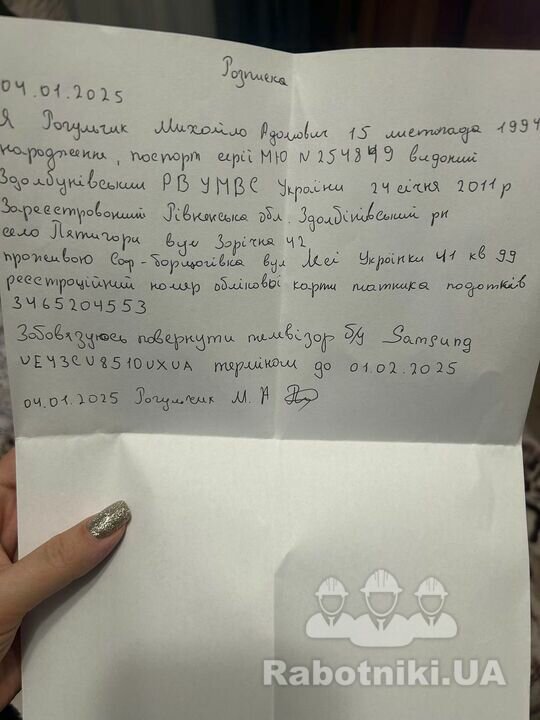 Розписка
04.01.2025
Я Рогульчик Михайло Адамович 15 листопада 1994
народження, паспорт серії МЮ N 254849 виданий
Здолбунівським РВ УМВС України 24 січня 2011 р
Зареєстрований Рівненська обл. Здолбінівський рн
село Пятигори вул Зорічна 42
проживаю Соф-борщагівка вул Лесі Українки 41 кв 99
реєстраційний номер облікової карти платника податків
3465204553
Зобовязуюсь повернути телевізор б/у Samsung
UE43CU8510UXUA терміном до 01.02.2025
04.01.2025 Рогульчик М. А
Rabotniki.UA